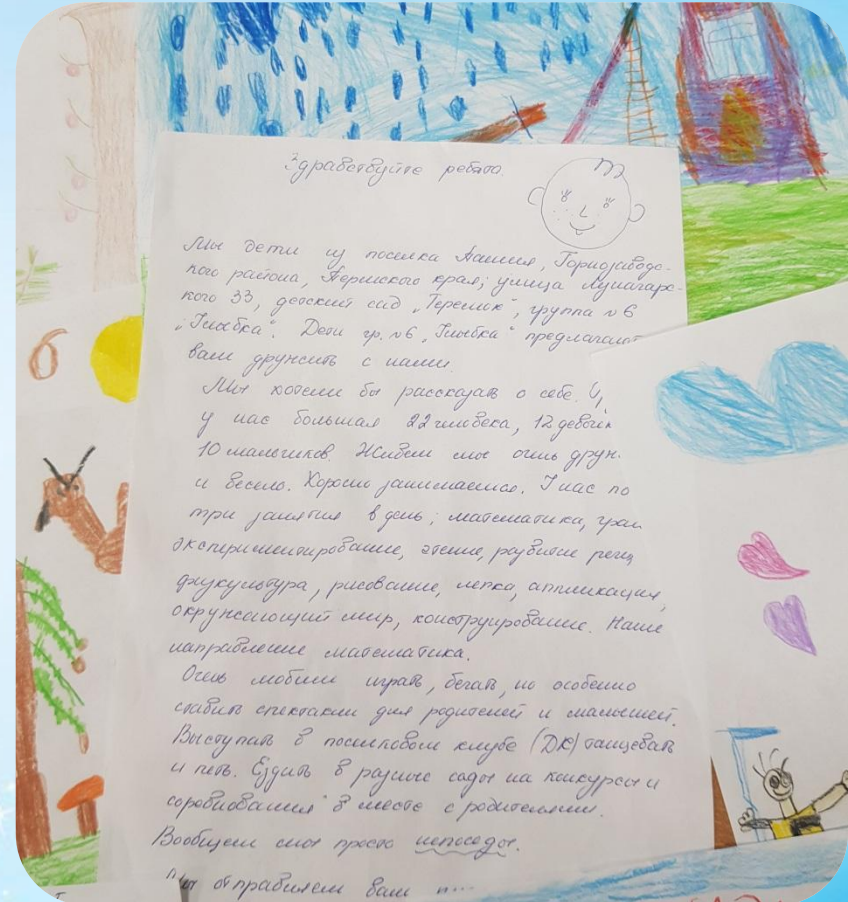 Здравствуйте ребята.
Мы дети из поселка Пашия, Горнозаводс-
кого района, Пермского края; улица Луначарс-
кого 33, детский сад „Теремок", группа №6
„Улыбка". Дети гр. №6 „Улыбка" предлагают
вам дружить с нами.
Мы хотели бы рассказать о себе.
у нас большая 22 человека, 12 девочк
10 мальчиков. Живем мы очень друж
и весело. Хорошо занимаемся. У нас по
три занятия в день; математика, грам
экспериментирование, чтение, развитие речи
физкультура, рисование, лепка, аппликация,
окружающий мир, конструирование. Наше
направление математика.
Очень любим играть, бегать, но особенно
ставить спектакли для родителей и малышей.
Выступать в поселковом клубе (ДК) танцевать
и петь. Ездить в разные сады на конкурсы и
соревнования в месте с родителями.
Вообщем мы просто непоседы.
Мы отправляем вам
6